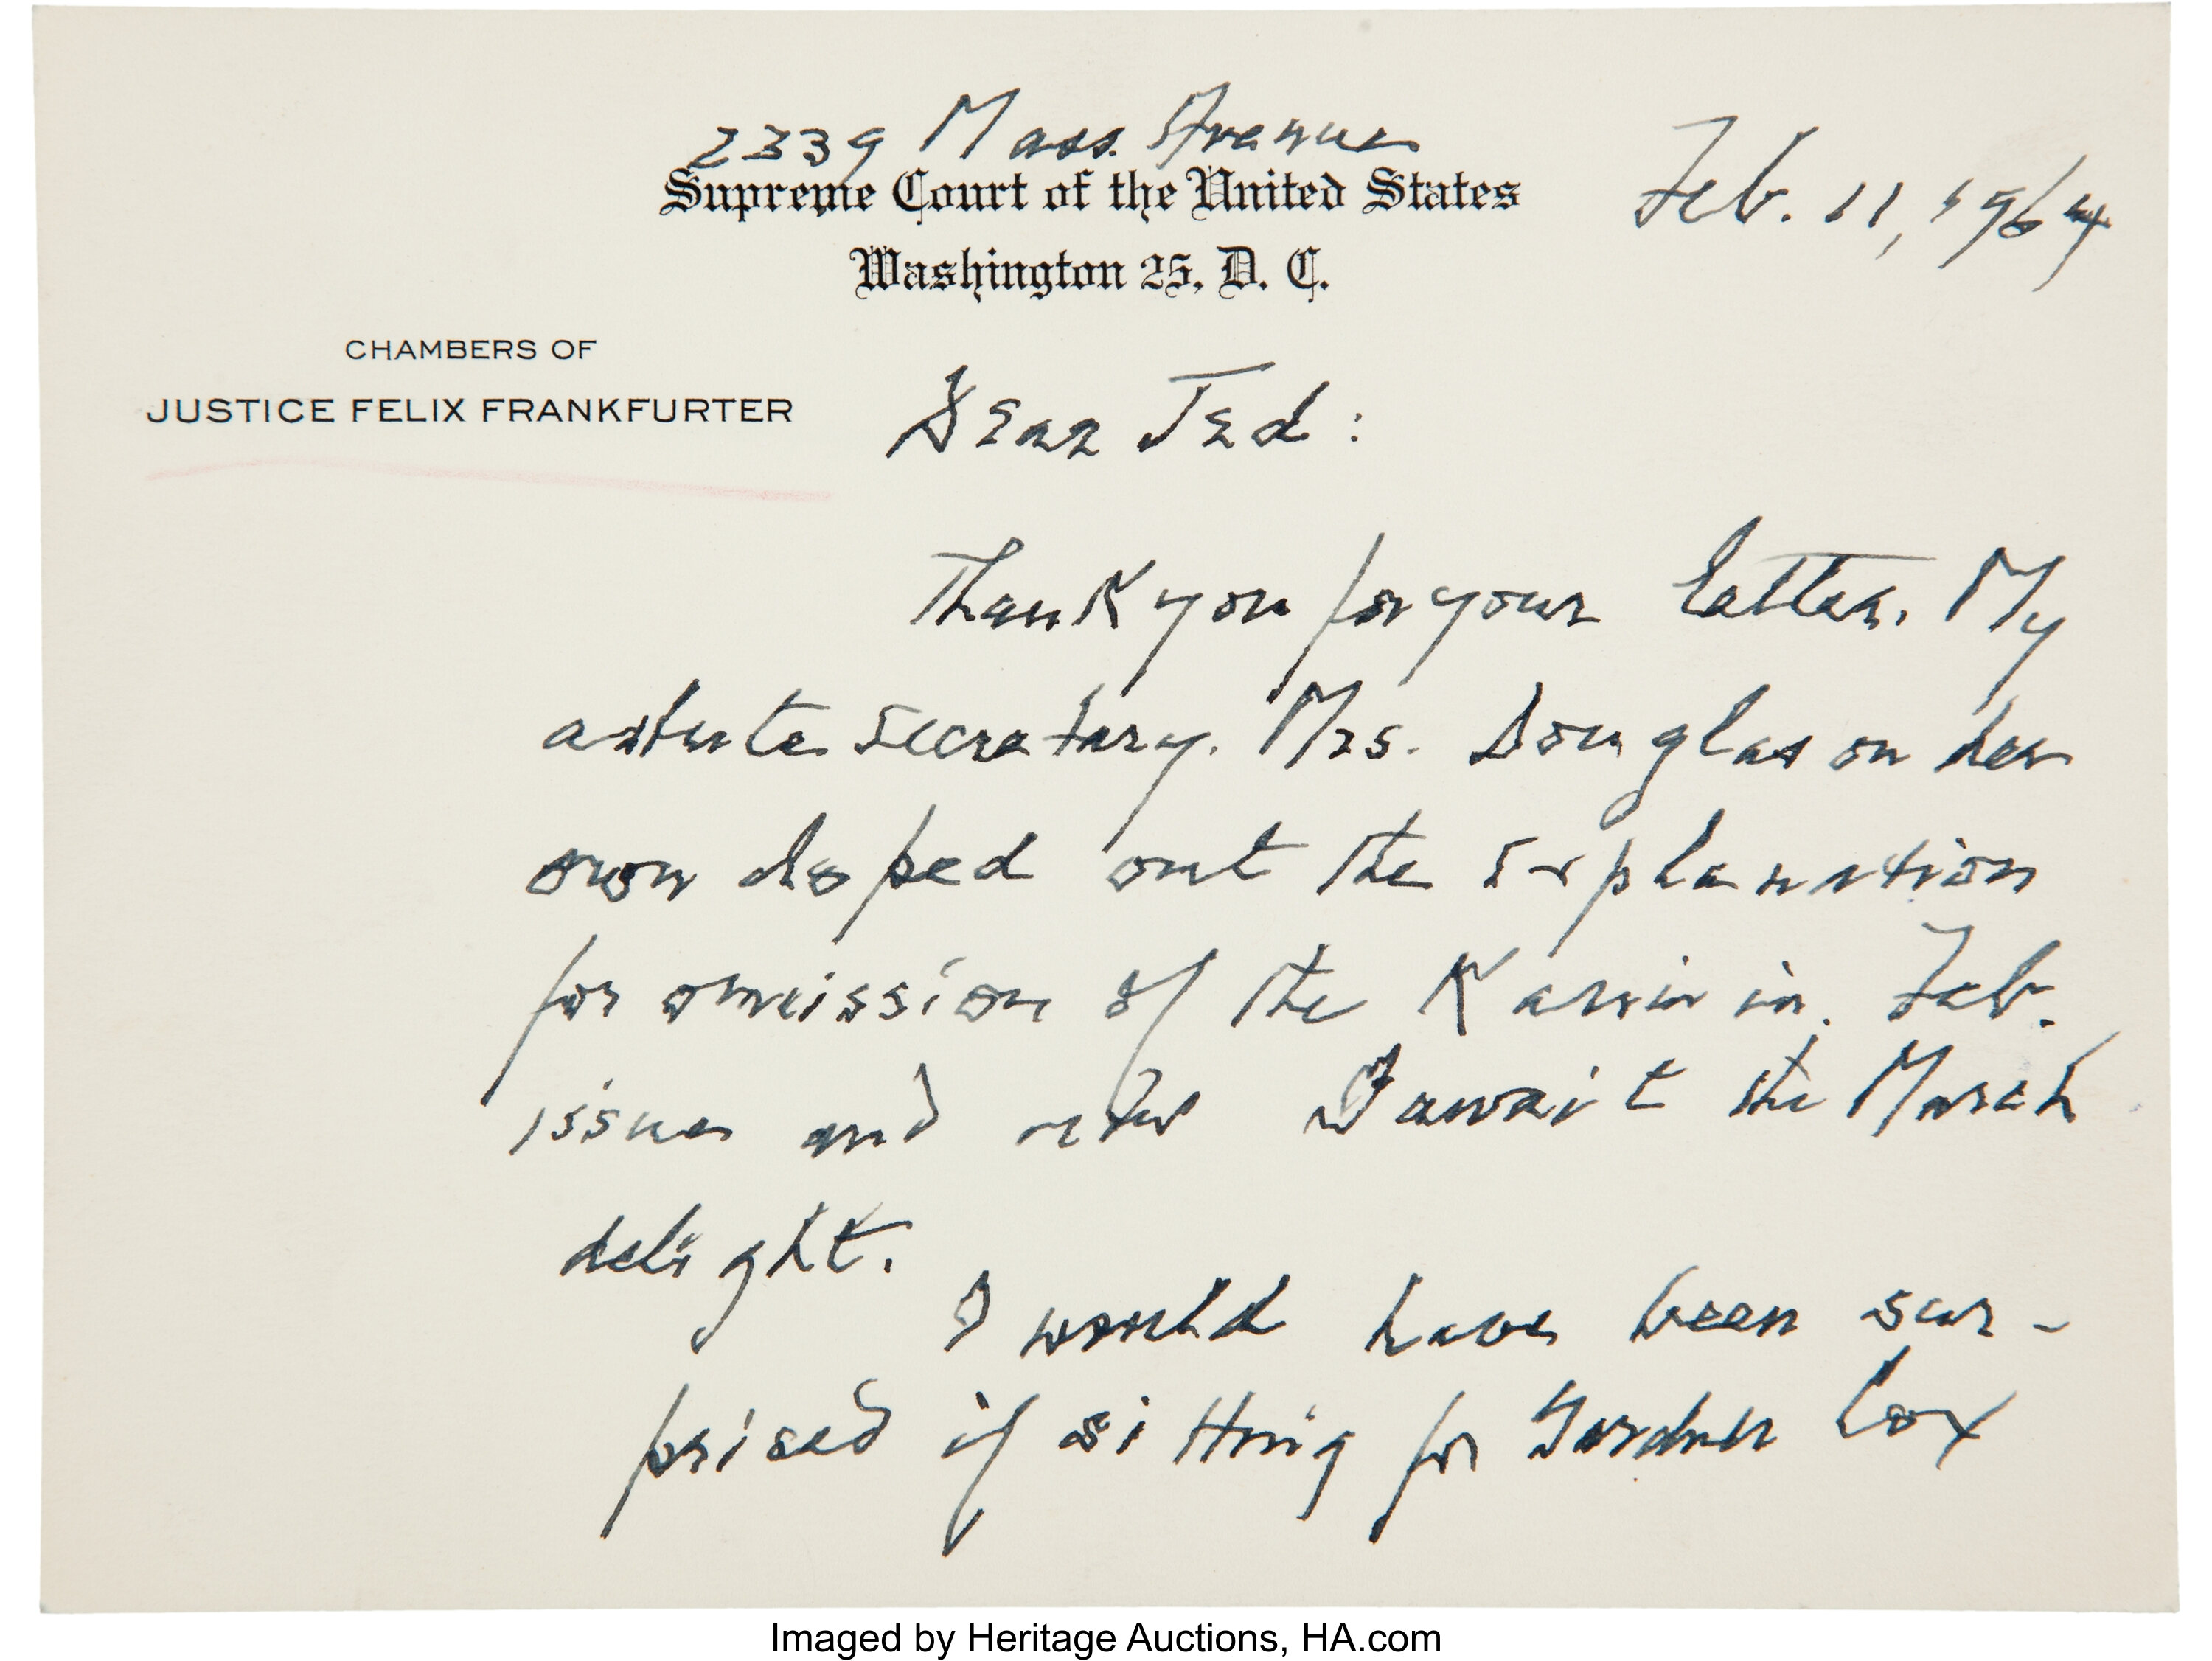 2339 Mass. Avenue
Supreme Court of the United States
Feb. 11, 1964
Washington 25, D. C.
CHAMBERS OF
JUSTICE FELIX FRANKFURTER
Dear Ted:
Thank you for your letter. My
astute secretary. Mrs. Douglas on her
own doped out the explanation
for omission of the in Feb.
issue and now I await the March
delight.
I would have been sur-
prised if sitting for Gardner Cox
Imaged by Heritage Auctions, HA.com